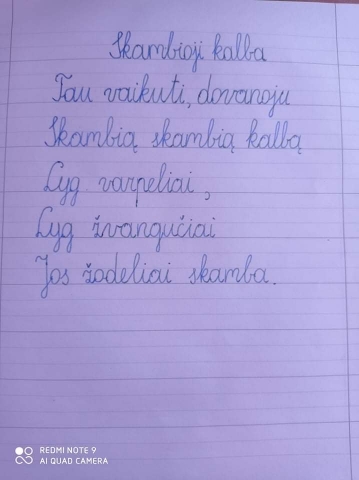 Skambioji kalba
Tau vaikuti, dovanoju
Skambią skambią kalbą
Lyg varpeliai,
Lyg žvangučiai
Jos žodeliai skamba.
REDMI NOTE 9
AI QUAD CAMERA